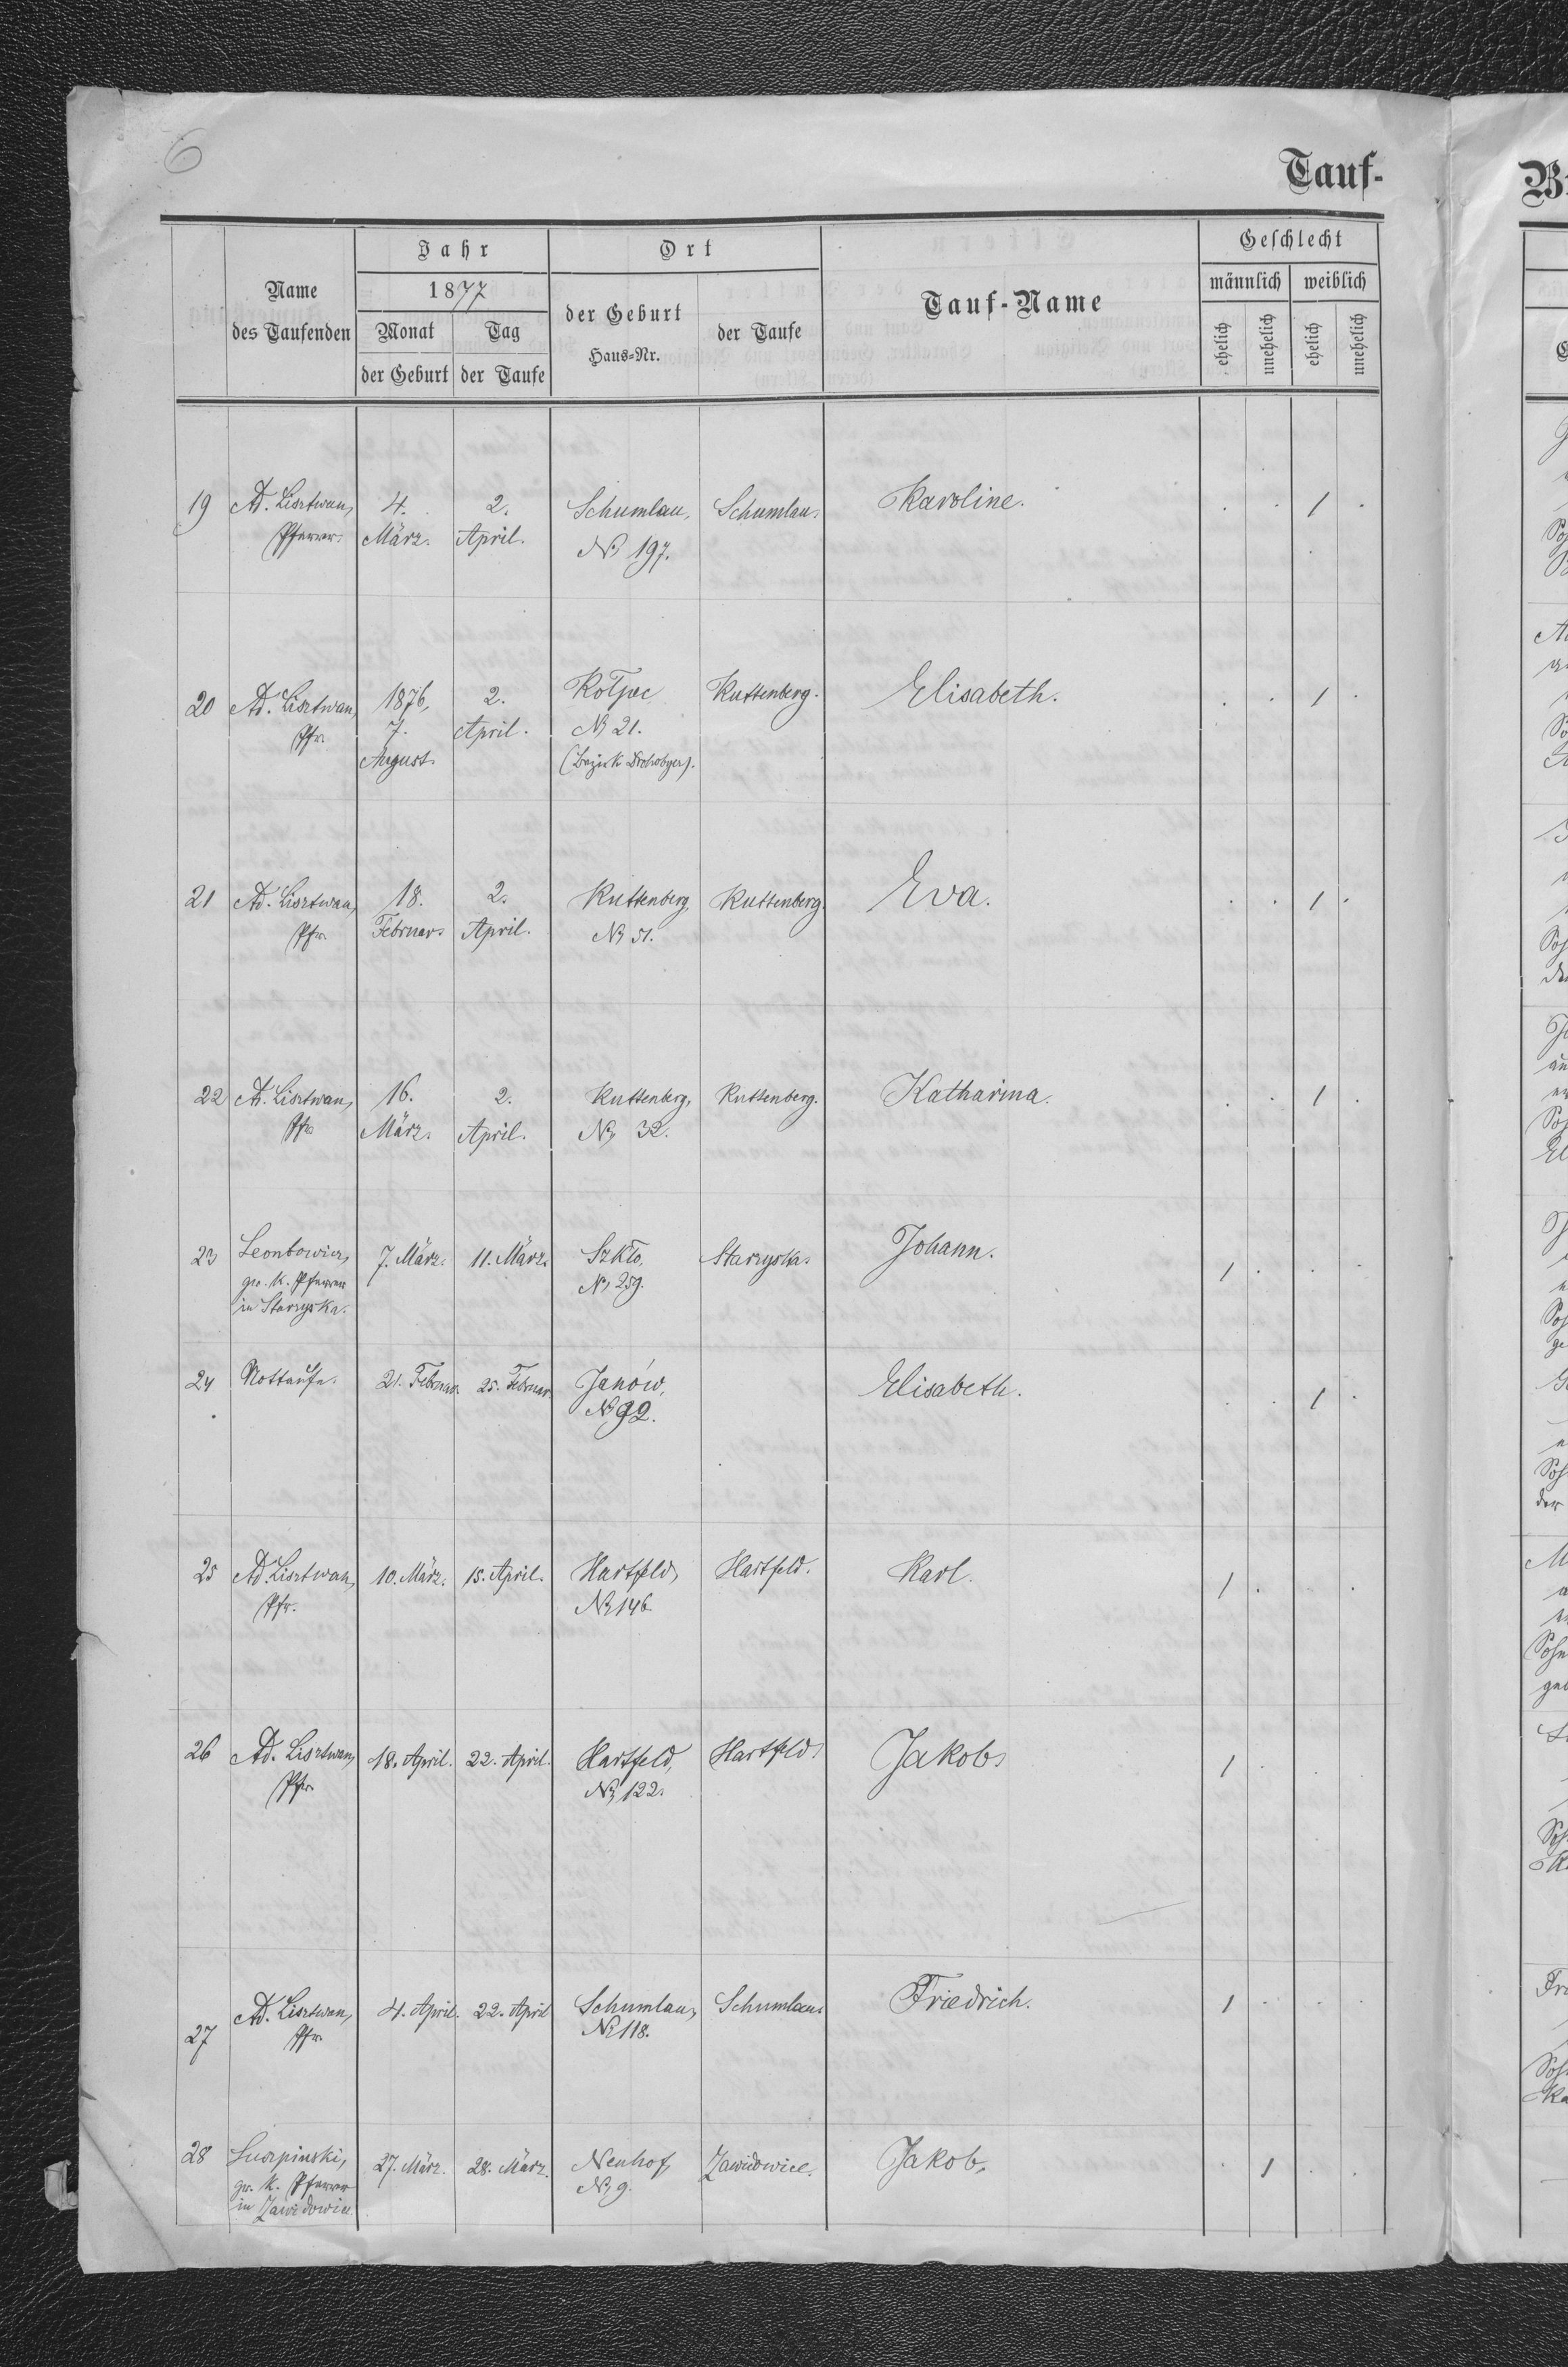 6
Tauf-
Name des Taufenden
Jahr
1877
Monat der Geburt
Tag der Taufe
Ort
der Geburt
Haus-Nr.
der Taufe
Tauf-Name
Geschlecht
männlich weiblich
ehelich unehelich ehelich unehelich
19 Ad. Lisztwan, 4. 2. Schumlau, Schumlau. Karoline. . . 1 .
Pfarrer. März. April. № 197.
20 Ad. Lisztwan, 1876, 2. Kołpec Kuttenberg. Elisabeth. . . 1 .
Pfr. 7. April. № 21.
August. (Bezirk Drohobycz).
21 Ad. Lisztwan, 18. 2. Kuttenberg, Kuttenberg. Eva. . . 1 .
Pfr. Februar. April. № 51.
22 Ad. Lisztwan, 16. 2. Kuttenberg, Kuttenberg. Katharina. . . 1 .
Pfr. März. April. № 32.
23 Leontowicz, 7. März. 11. März. Szkło, Starzyska. Johann. 1 . . .
gr. k. Pfarrer № 259.
in Starzyska.
24 Nottaufe. 21. Februar. 25. Februar. Janów, Elisabeth. . . 1 .
№ 92.
25 Ad. Lisztwan, 10. März. 15. April. Hartfeld, Hartfeld. Karl. 1 . . .
Pfr. № 146
26 Ad. Lisztwan, 18. April. 22. April. Hartfeld, Hartfeld. Jakob. 1 . . .
Pfr. № 122.
27 Ad. Lisztwan, 4. April. 22. April Schumlau, Schumlau. Friedrich. 1 . . .
Pfr. № 118.
28 27. März. 28. März. Neuhof, Zawidowice. Jakob. . 1 . .
gr. k. Pfarrer № 9.
in Zawidowice